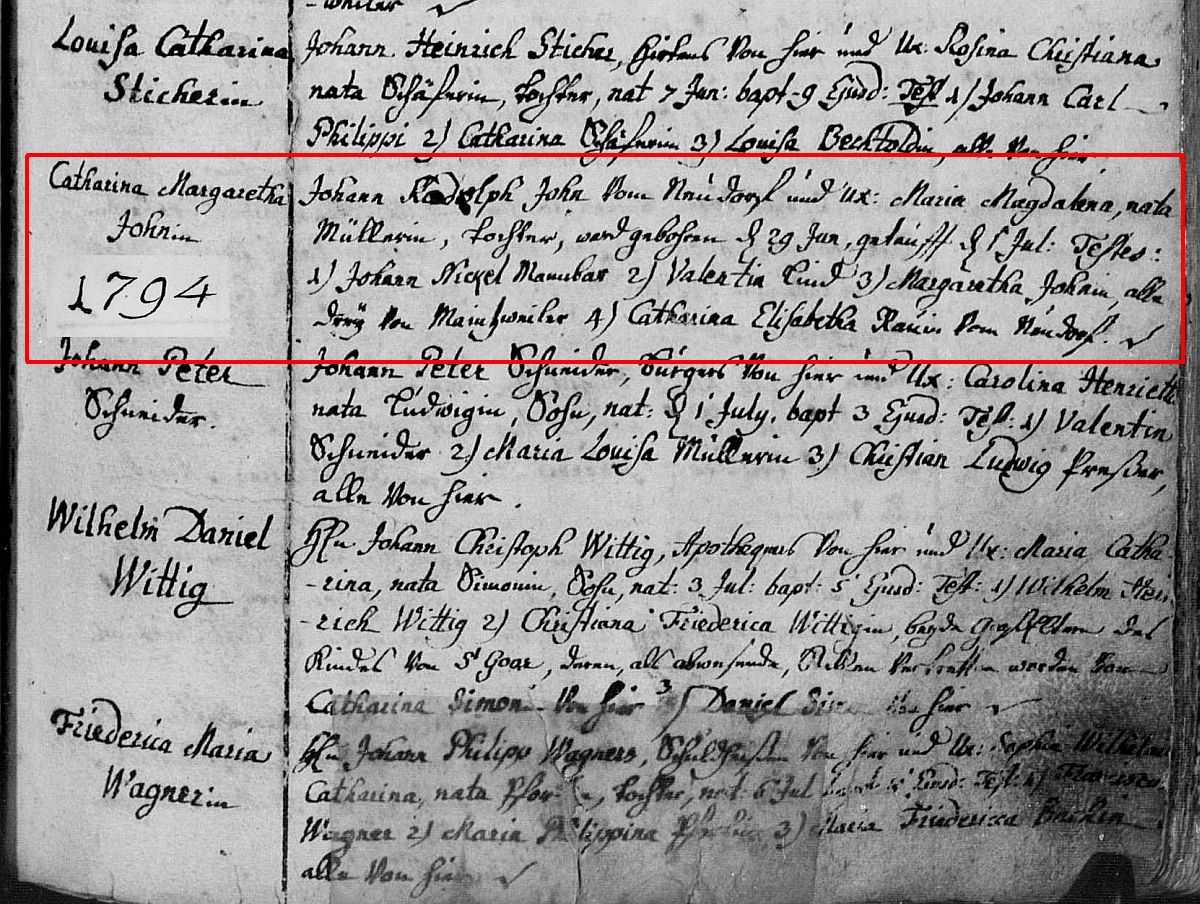 -weiler
Louisa Catharina
Sticherin
Johann Heinrich Sticher, Hirtens von hier und Ux: Rosina Christiana
nata Schäferin, Tochter, nat 7 Jun: bapt. 9 Ejusd: Test 1) Johann Carl
Philippi 2) Catharina Schäferin 3) Louisa Bechtoldin, alle von hier
Catharina Margaretha
Johnin
1794
Johann Rudolph John vom Neudorf und Ux: Maria Magdalena, nata
Müllerin, Tochter, ward gebohren d 29 Jun, getaufft d 1 Jul: Testes:
1) Johann Nickel 2) Valentin Lind 3) Margaretha Johnin, alle
drey von Mannweiler 4) Catharina Elisabetha Rauin vom Neudorf.
Johann Peter
Schneider.
Johann Peter Schneider, Bürgers von hier und Ux: Carolina Henriett
nata Ludwigin, Sohn, nat: d 1 July, bapt 3 Ejusd: Test: 1) Valentin
Schneider 2) Maria Louisa Müllerin 3) Christian Ludwig Presser,
alle von hier.
Wilhelm Daniel
Wittig
Hn Johann Christoph Wittig, Apothequers von hier und Ux: Maria Catha-
-rina, nata Simonin, Sohn, nat: 3 Jul: bapt: 5 Ejusd: Test: 1) Wilhelm Hein-
-rich Wittig 2) Christiana Friederica Wittigin, beyde Großeltern des
Kindes von St Goar, deren, als abwesende, Stellen vertretten worden von
Catharina Simon von hier 3) Daniel von hier
Friederica Maria
Wagnerin
Hn Johann Philipp Wagners, Schultheisen von hier und Ux: Sophia Wilhelm
Catharina, nata Tochter, nat: 6 Jul bapt 8 Ejusd: Test: 1)
Wagner 2) Maria Philippina 3) Maria Friedericca
alle von hier